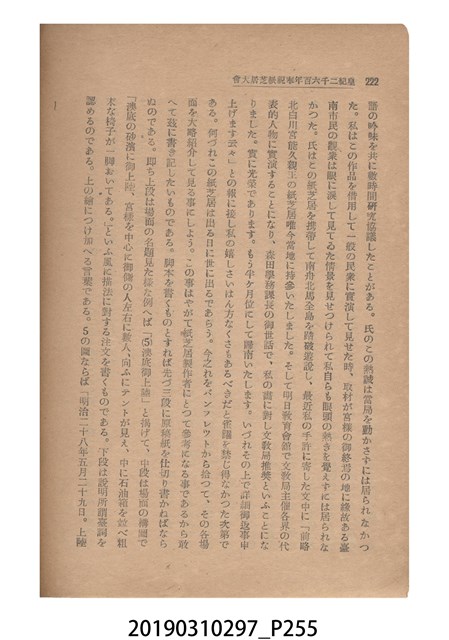 222 皇紀二千六百年奉祝紙芝居大會
語の吟味を共に數時間研究協議したことがある。氏のこの熱誠は當局を動かさずには居られなかつ
た。私はこの作品を借用して一般の民衆に實演して見せた時、取材が宮様の御終焉の地に緣故ある臺
南市民の觀衆は眼に涙して見てゐた情景を見せつけられて私自らも眼頭の熱きを覺えずには居られな
かつた。氏はこの紙芝居を携帶して南舟北馬全島を踏破遊說し、最近私の手許に寄した文中に「前略
北白川宮能久親王の紙芝居唯今當地に持參いたしました。そして明日敎育會館で文敎局主催各界の代
表的人物に實演することになり、森田學務課長の御世話で、私の書に對し文敎局推奬といふことにな
りました。實に光榮であります。もう半ケ月位にして歸南いたします。いづれその上で詳細御返事申
上げます云々」との報に接し私の嬉しさいはん方なくさもあるべきだと雀躍を禁じ得なかつた次第で
ある。何づれこの紙芝居は出る日に世に出るであらう。今之れをパンフレツトから拾つて、その各場
面を大略紹介して見る事にしよう。この事はやがて紙芝居製作者にとつて參考になる事であるから敢
へて玆に書き記したいものである。脚本を書くものとすれば先づ三段に原稿紙を仕切り書かねばなら
ぬのである。卽ち上段は場面の名題見た樣な例へば「(5)澳底御上陸」と揭げて、中段は場面の構圖で
「澳底の砂濱に御上陸、宮樣を中心に御傭の人左右に數人、向ふにテントが見え、中に石油箱を並べ粗
末な椅子が一脚おいてある。」といふ風に描法に對する注文を書くものである。下段は說明所謂臺詞を
認めるのである。上の繪につけ加へる言葉である。5の圖ならば「明治二十八年五月二十九日。上陸
20190310297_P255